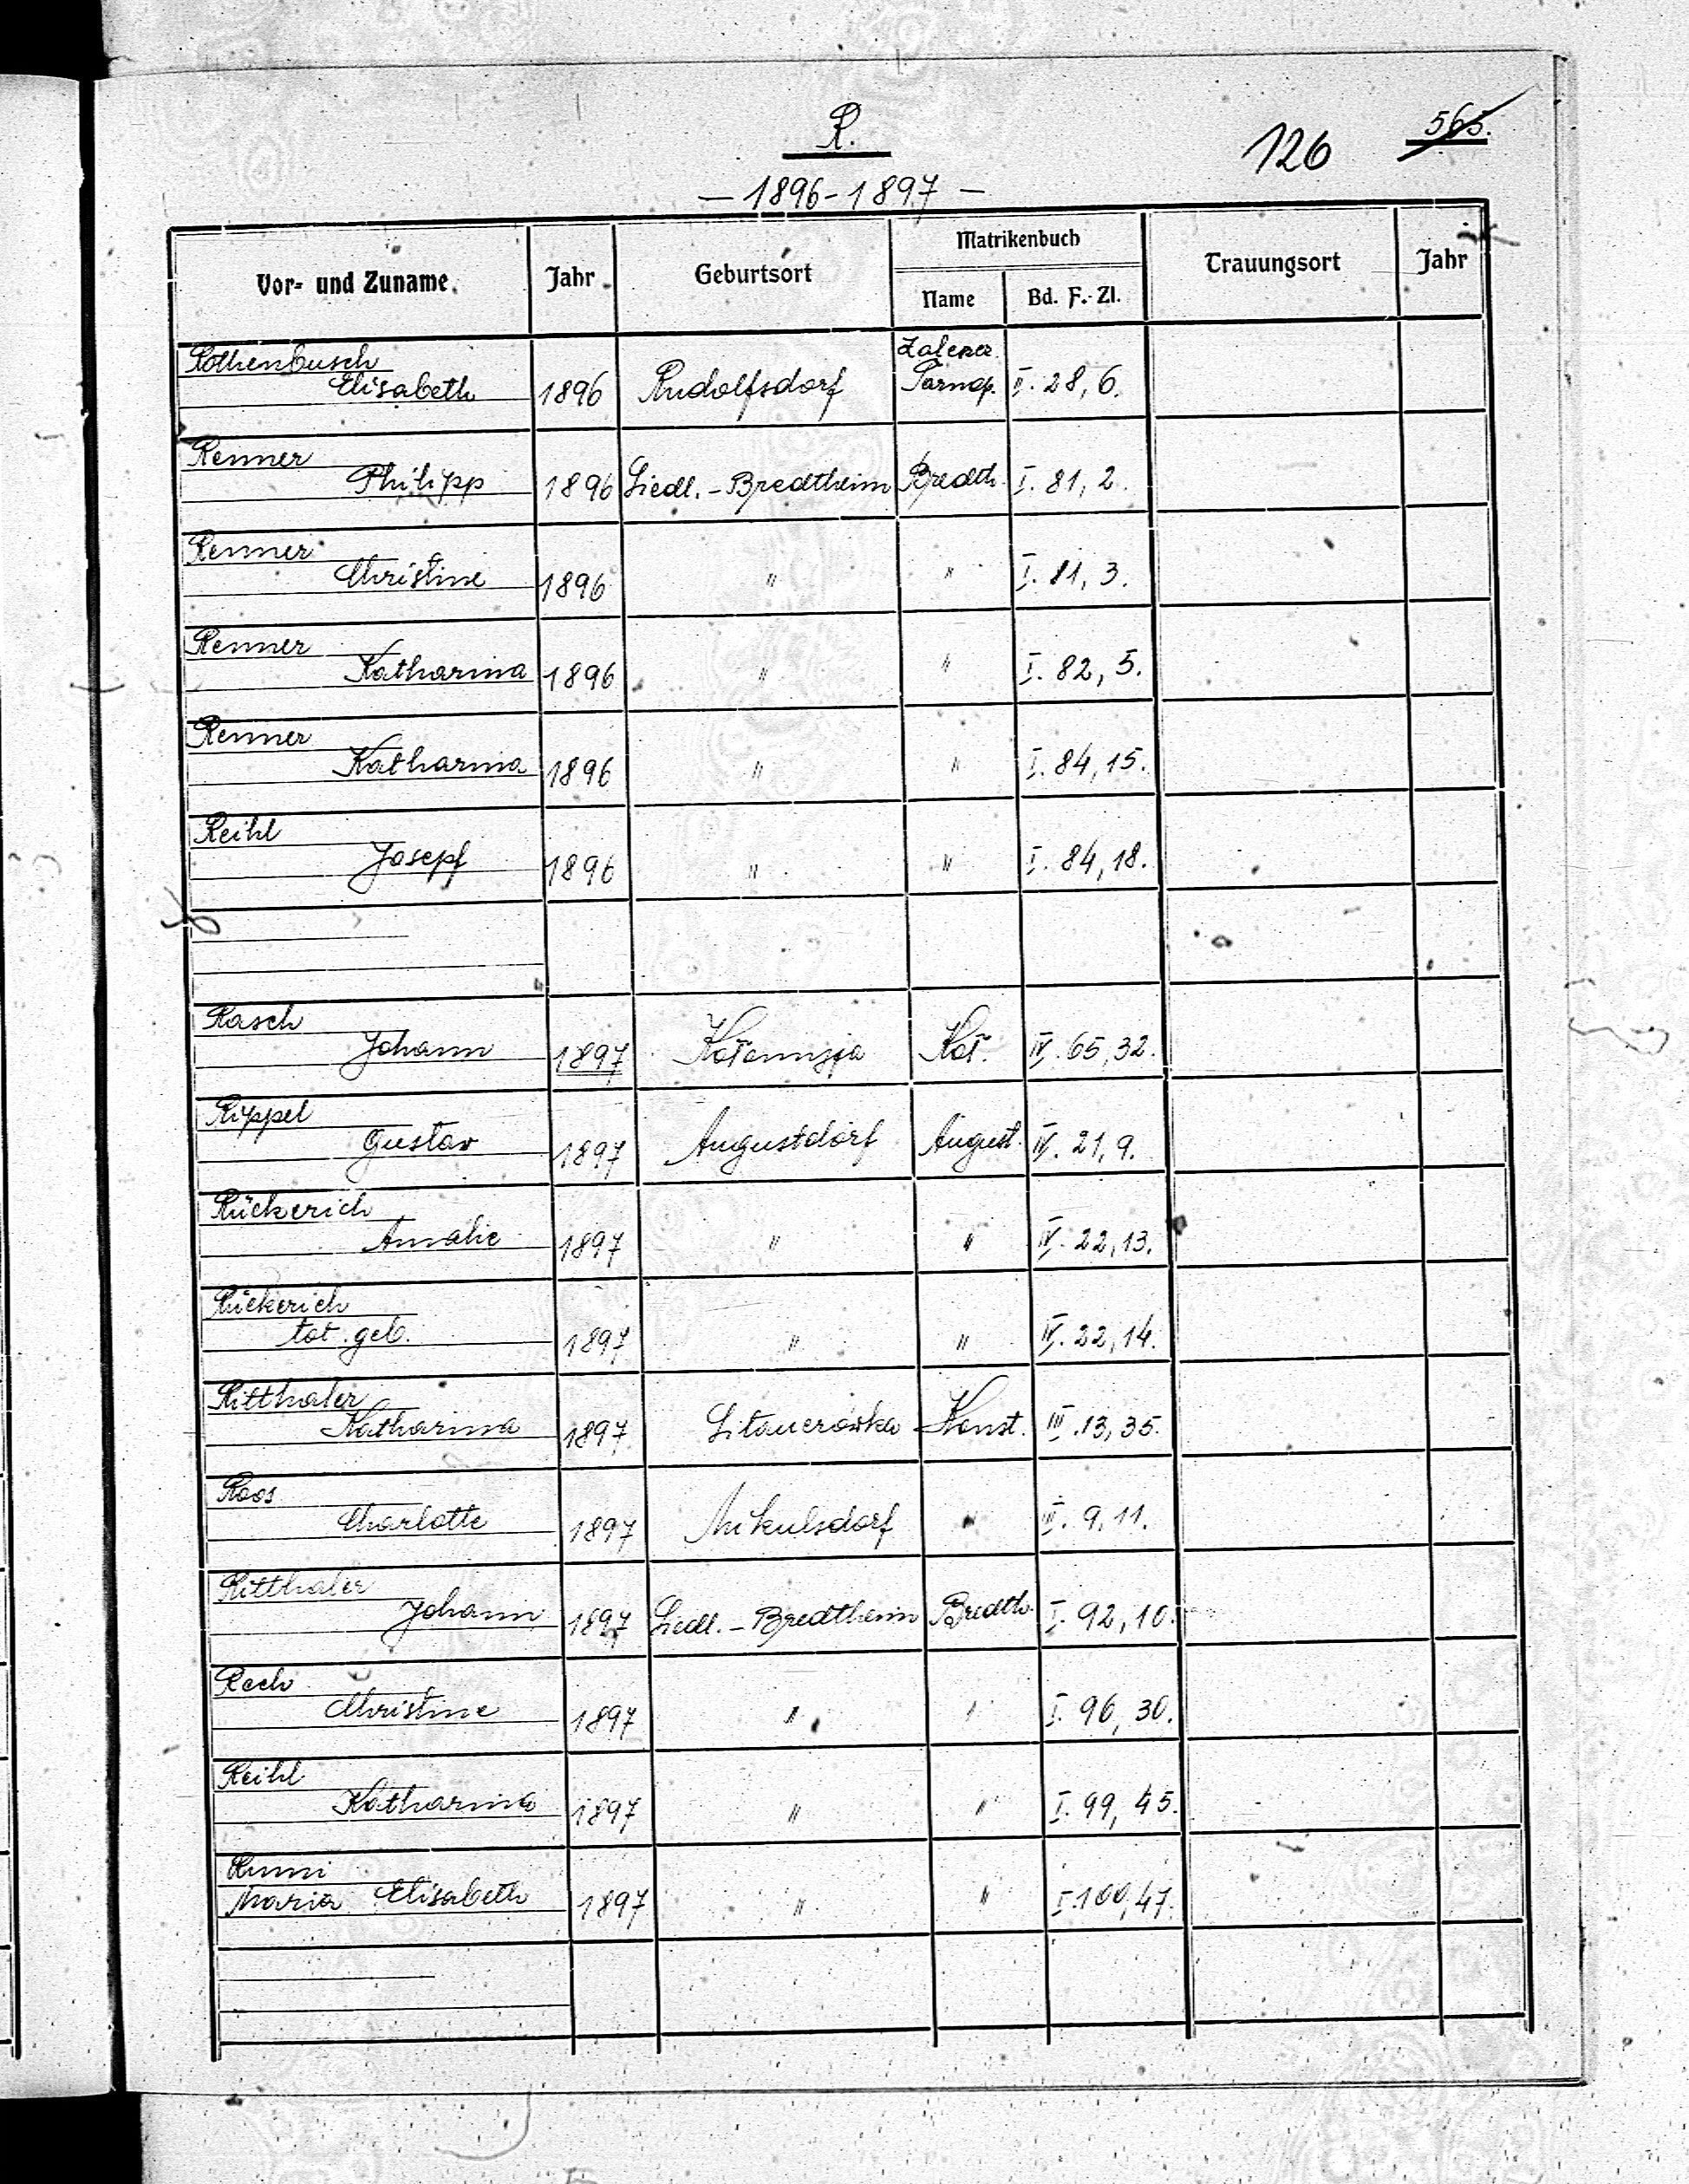 R.
126
565.
— 1896-1897 —
Vor- und Zuname. Jahr Geburtsort Matrikenbuch Trauungsort Jahr
Name Bd. F.-Zl.
Rothenbusch
Elisabeth 1896 Rudolfsdorf Tarnop. II. 28, 6.
Renner
Philipp 1896 Siedl.-Bredtheim Bredth. I. 81, 2.
Renner
Christine 1896 " " I. 81, 3.
Renner
Katharina 1896 " " I. 82, 5.
Renner
Katharina 1896 " " I. 84, 15.
Reihl
Josepf 1896 " " I. 84, 18.
Rasch
Johann 1897 Kołomyja Koł. IV. 65, 32.
Rippel
Gustav 1897 Augustdorf August. IV. 21, 9.
Rückerich
Amalie 1897 " " IV. 22, 13.
Rückerich
tot. geb. 1897 " " IV. 22, 14.
Ritthaler
Katharina 1897 Sitauerówka Konst. III. 13, 35.
Roos
Charlotte 1897 Mikulsdorf " III. 9, 11.
Ritthaler
Johann 1897 Siedl.-Bredtheim Bredth. I. 92, 10.
Rech
Christine 1897 " " I. 96, 30.
Reihl
Katharina 1897 " " I. 99, 45.
Maria Elisabeth 1897 " " I. 100, 47.